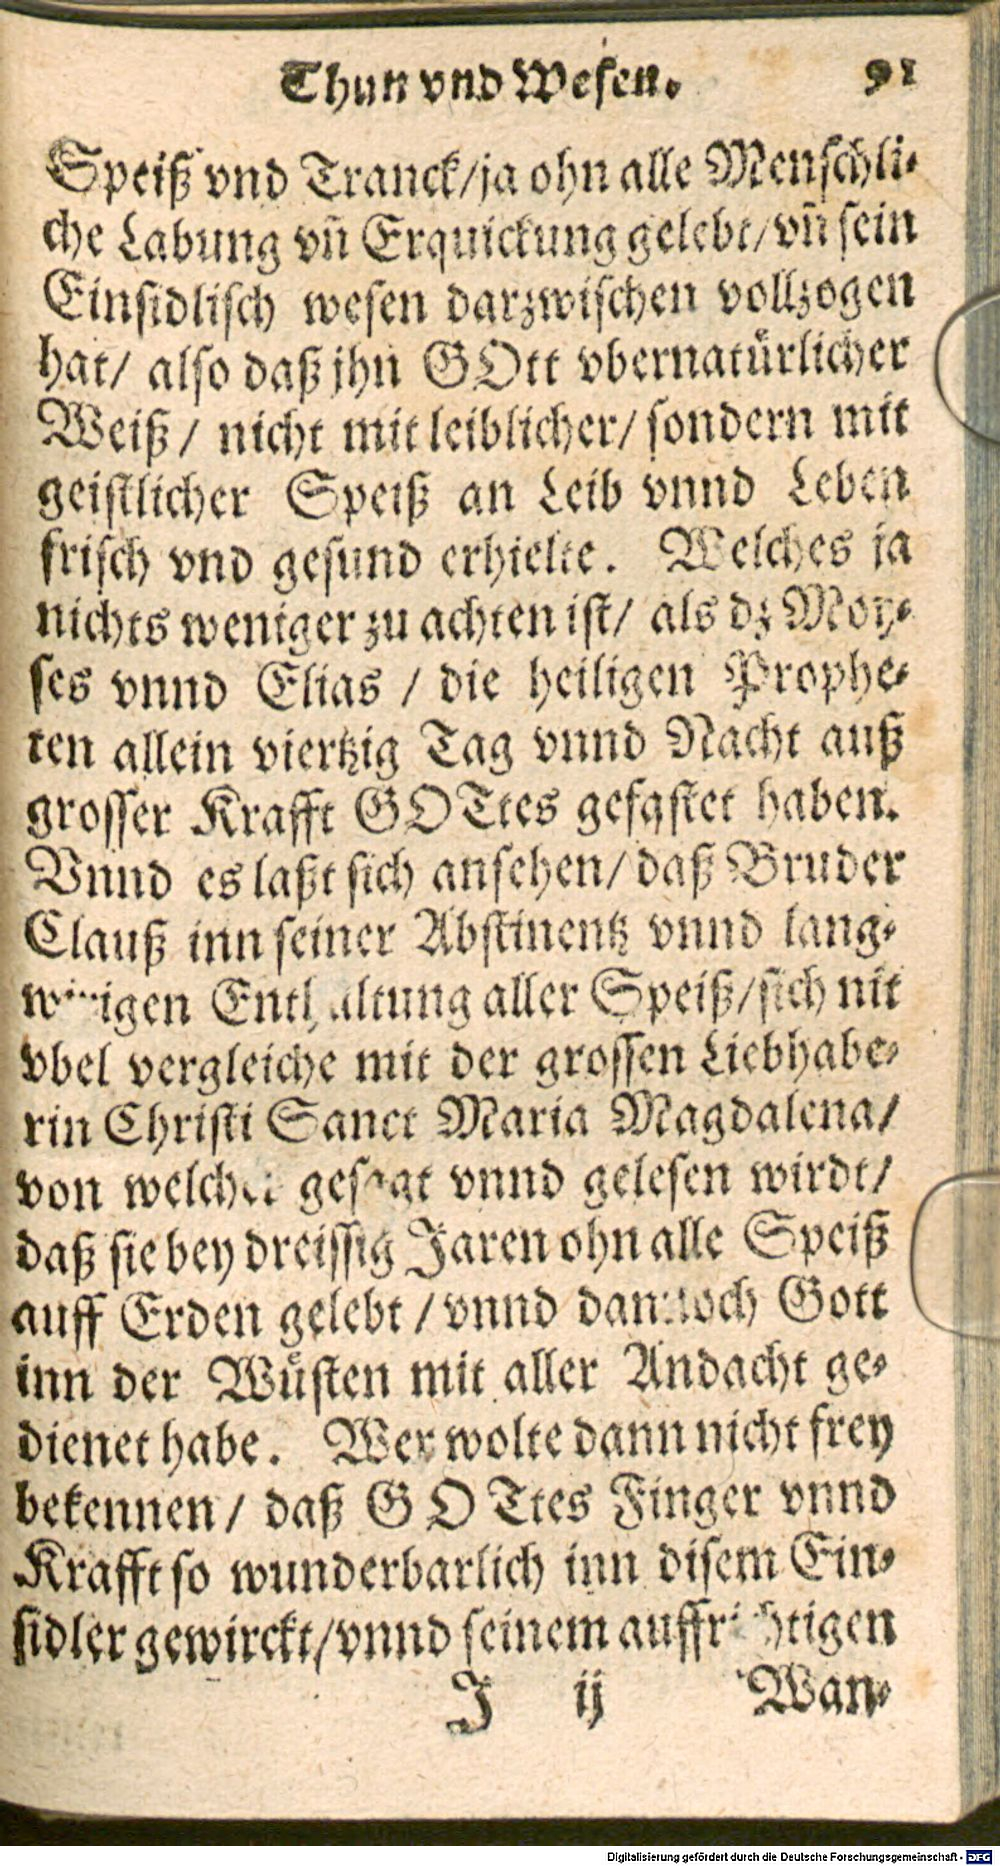 Thun vnd Wesen. 91
Speiß vnd Tranck/ja ohn alle Menschli-
che Labung vñ Erquickung gelebt/vñ sein
Einsidlisch wesen darzwischen vollzogen
hat/ also daß jhn GOtt vbernatürlicher
Weiß/ nicht mit leiblicher/ sondern mit
geistlicher Speiß an Leib vnnd Leben
frisch vnd gesund erhielte. Welches ja
nichts weniger zu achten ist/ als dz Moy-
ses vnnd Elias / die heiligen Prophe-
ten allein viertzig Tag vnnd Nacht auß
grosser Krafft GOTtes gefastet haben.
Vnnd es laßt sich ansehen/ daß Bruder
Clauß inn seiner Abstinentz vnnd lang-
wirigen Enthaltung aller Speiß/sich nit
vbel vergleiche mit der grossen Liebhabe-
rin Christi Sanct Maria Magdalena/
von welcher gesagt vnnd gelesen wirdt/
daß sie bey dreissig Jaren ohn alle Speiß
auff Erden gelebt / vnnd dannoch Gott
inn der Wüsten mit aller Andacht ge-
dienet habe. Wer wolte dann nicht frey
bekennen/ daß GOTtes Finger vnnd
Krafft so wunderbarlich inn disem Ein-
sidler gewirckt/vnnd seinem auffrichtigen
J ij Wan-
Digitalisierung gefördert durch die Deutsche Forschungsgemeinschaft - DFG